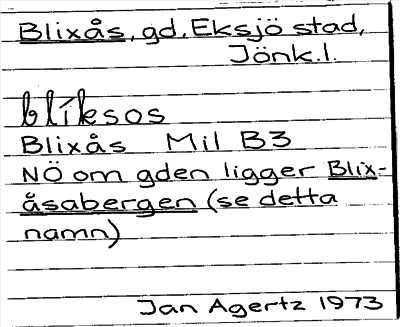 Blixås, gd, Eksjö stad,
Jönk.l.
blíksos
Blixås Mil B3
NÖ om gden ligger Blix-
åsabergen (se detta
namn)
Jan Agertz 1973